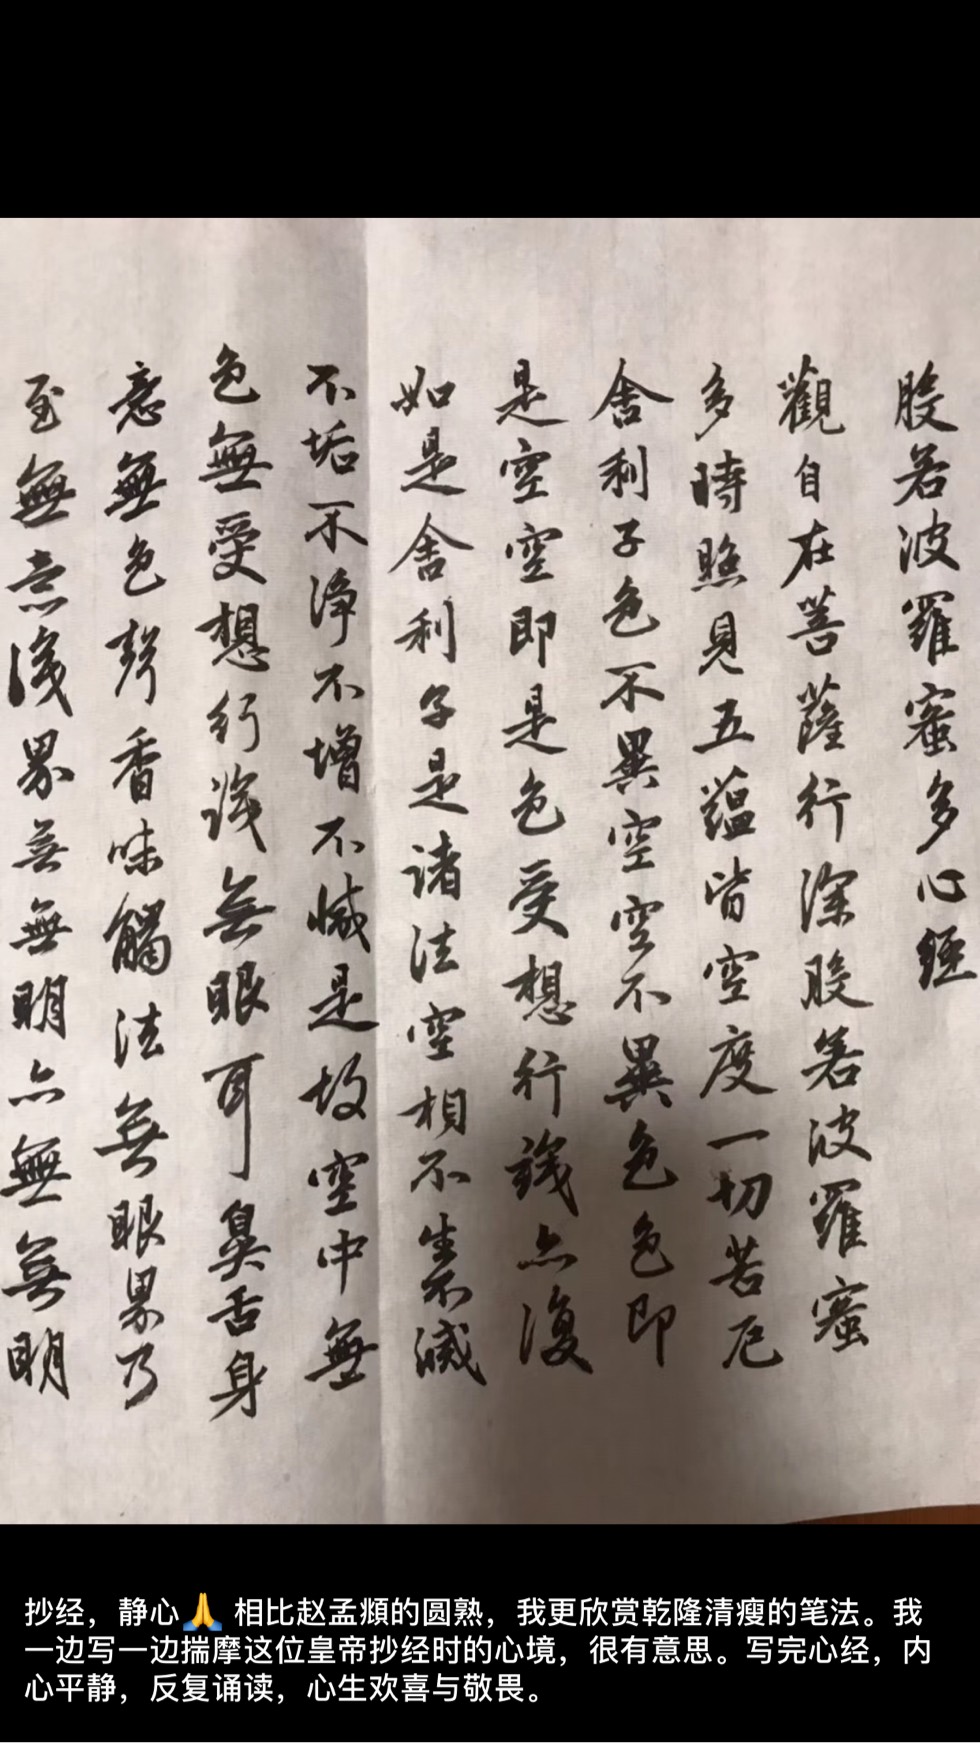 般若波羅蜜多心經
觀自在菩薩行深般若波羅蜜
多時照見五蘊皆空度一切苦厄
舍利子色不異空空不異色色即
是空空即是色受想行識亦復
如是舍利子是諸法空相不生不滅
不垢不淨不增不減是故空中無
色無受想行識無眼耳鼻舌身
意無色聲香味觸法無眼界乃
至無意識界無無明亦無無明
抄经，静心🙏 相比赵孟頫的圆熟，我更欣赏乾隆清瘦的笔法。我
一边写一边揣摩这位皇帝抄经时的心境，很有意思。写完心经，内
心平静，反复诵读，心生欢喜与敬畏。